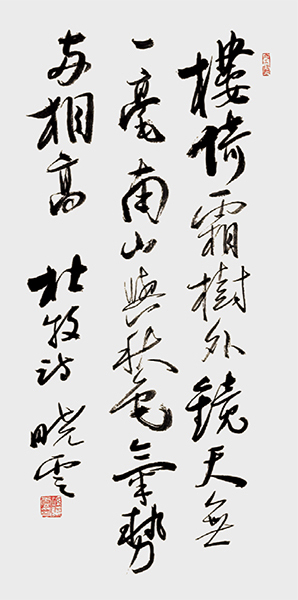 樓倚霜樹外鏡天無
一毫南山與秋色氣勢
兩相高 杜牧詩 曉雲